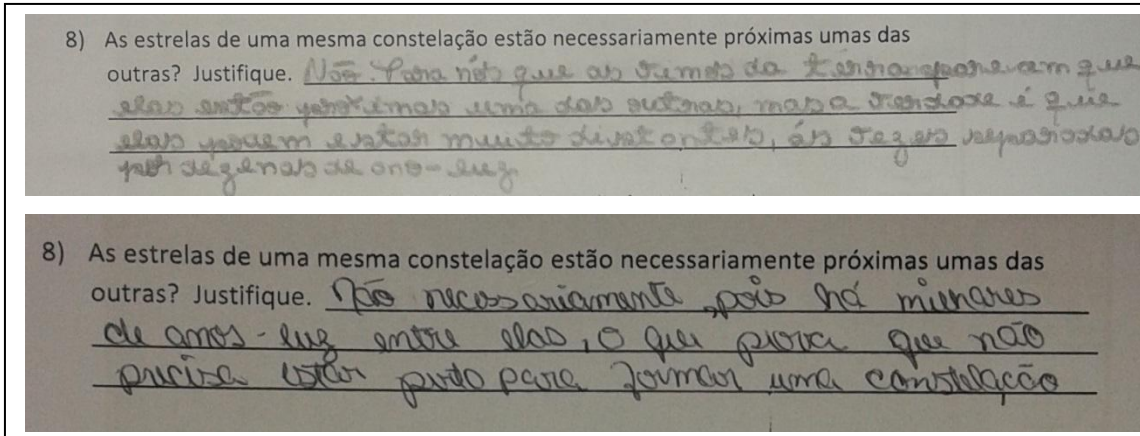 8) As estrelas de uma mesma constelação estão necessariamente próximas umas das
outras? Justifique. Não. Para nós que as vemos da terra aparecem que
elas estão proximas uma das outras, mas a verdade é que
elas podem estar muito distantes, ás vezes separadas
por dezenas de ano-luz
8) As estrelas de uma mesma constelação estão necessariamente próximas umas das
outras? Justifique. Não necessariamente, pois há milhares
de anos-luz entre elas, o que prova que não
precisa estar perto para formar uma constelação